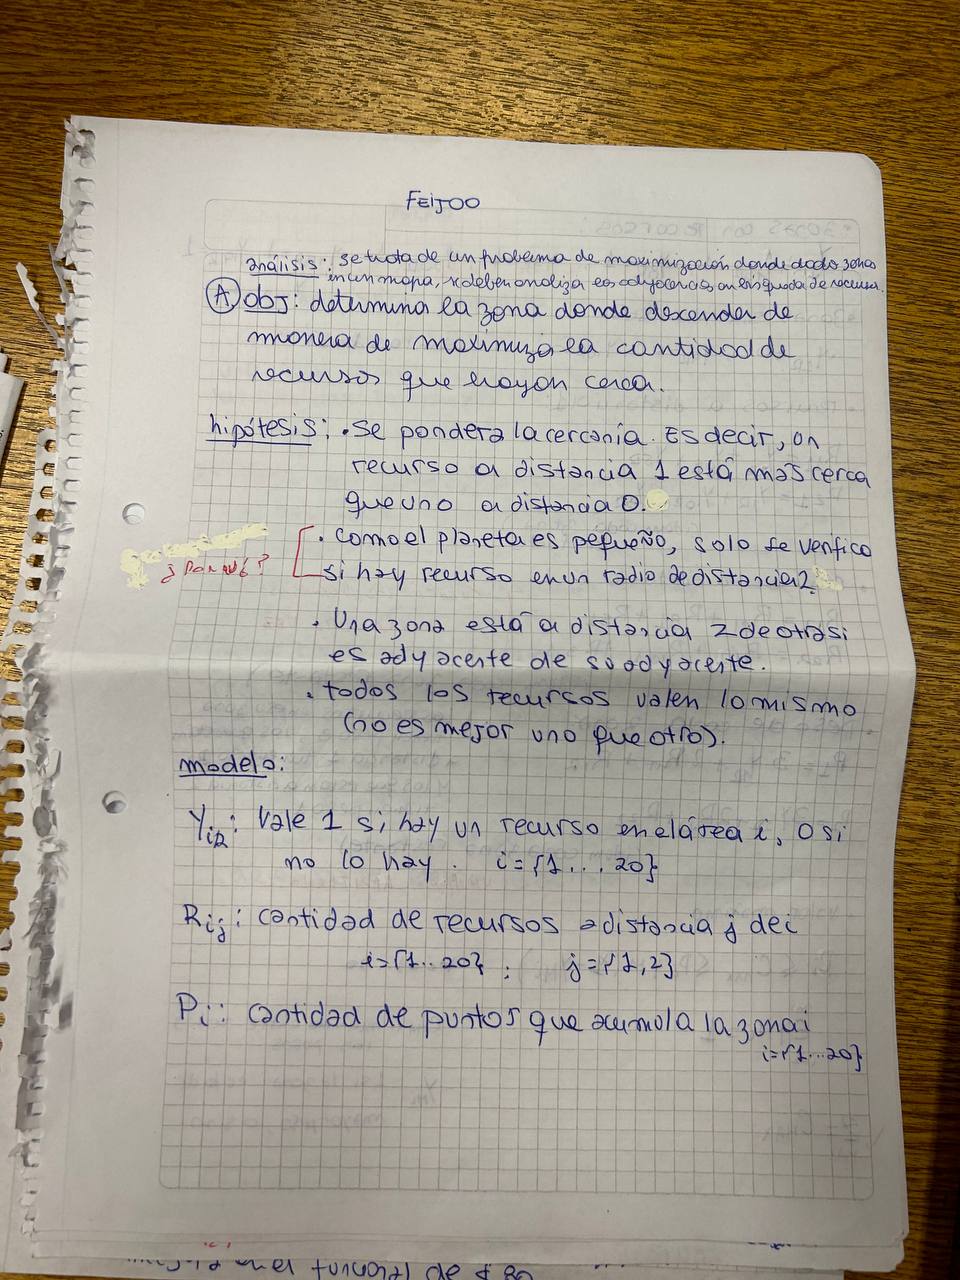 FEIJOO
análisis: se trata de un problema de maximización donde dado zonas
en un mapa, se deben analizar las adyacencias en búsqueda de recursos.
(A) obj: determinar la zona donde descender de
manera de maximizar la cantidad de
recursos que hayan cerca.
hipótesis: . se pondera la cercanía. Es decir, un
recurso a distancia 1 está más cerca
que uno a distancia 0.
. como el planeta es pequeño, solo se verifica
¿Por qué?
si hay recurso en un radio de distancia 2.
. Una zona está a distancia 2 de otra si
es adyacente de su adyacente.
. todos los recursos valen lo mismo
(no es mejor uno que otro).
modelo:
Yi: Vale 1 si hay un recurso en el área i, 0 si
no lo hay. i={1...20}
Rij: cantidad de recursos a distancia j de i
i={1..20} ; j={1,2}
Pi: cantidad de puntos que acumula la zona i
i={1...20}